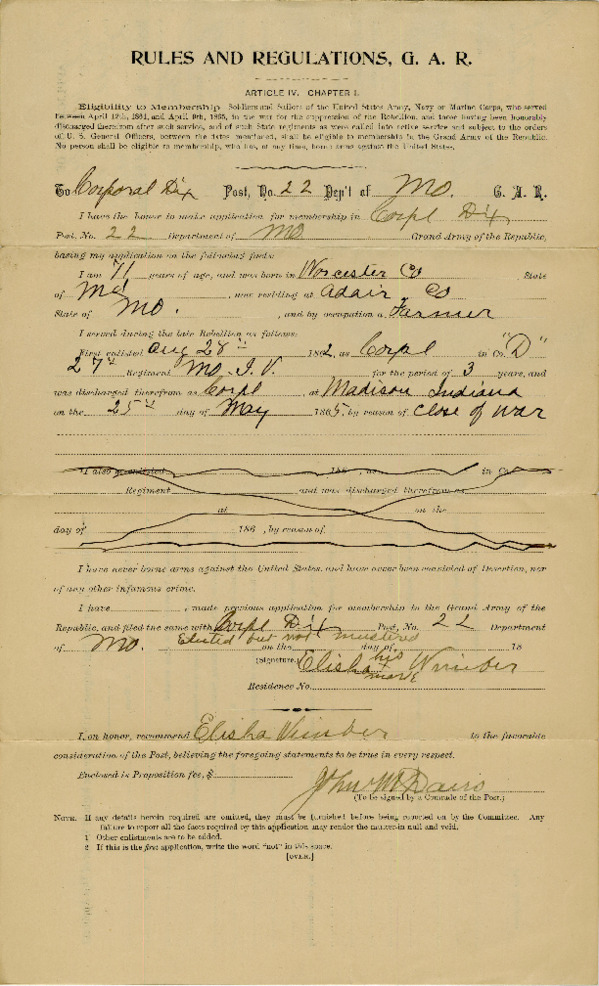 RULES AND REGULATIONS, G. A. R.
ARTICLE IV. CHAPTER I.
Eligibility to Membership. Soldiers and Sailors of the United States Army, Navy or Marine Corps, who served
between April 12th, 1861, and April 9th, 1865, in the war for the suppression of the Rebellion, and those having been honorably
discharged therefrom after such service, and of such State regiments as were called into active service and subject to the orders
of U. S. General Officers, between the dates mentioned, shall be eligible to membership in the Grand Army of the Republic.
No person shall be eligible to membership, who has, at any time, borne arms against the United States.
To Corporal Dix Post, No. 22 Dep't of Mo. G. A. R.
I have the honor to make application for membership in Corpl Dix
Post, No. 22 Department of Mo Grand Army of the Republic,
basing my application on the following facts:
I am 71 years of age, and was born in Worcester Co State
of Md, now residing at Adair Co
State of Mo., and by occupation a Farmer
I served during the late Rebellion as follows:
First enlisted Aug 28th 1862, as Corpl in Co. "D"
27th Regiment Mo. I. V. for the period of 3 years, and
was discharged therefrom as Corpl at Madison Indiana
on the 25th day of May 1865, by reason of close of war
I also re-enlisted 186 , as in Co.
Regiment and was discharged therefrom as
at on the
day of 186 , by reason of
I have never borne arms against the United States, and have never been convicted of Desertion, nor
of any other infamous crime.
I have , made previous application for membership in the Grand Army of the
Republic, and filed the same with Corpl Dix Post, No. 22 Department
of Mo. Elected but not mustered on the day of 18
(Signature) Elisha his mark
Residence No.
I, on honor, recommend Elisha to the favorable
consideration of the Post, believing the foregoing statements to be true in every respect.
Enclosed is Proposition fee, $
John M Davis
(To be signed by a Comrade of the Post.)
NOTE. If any details herein required are omitted, they must be furnished before being reported on by the Committee. Any
failure to report all the facts required by this application may render the muster-in null and void.
1 Other enlistments are to be added.
2 If this is the first application, write the word "not" in this space.
[OVER.]